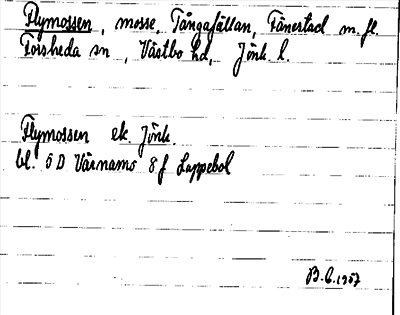 Flymossen, mosse, Tångafällan, Fänestad m. fl.
Forsheda sn, Västbo hd, Jönk. l.
Flymossen ek. Jönk.
bl. 5 D Värnamo 8 f Lappebol
B.C. 1957